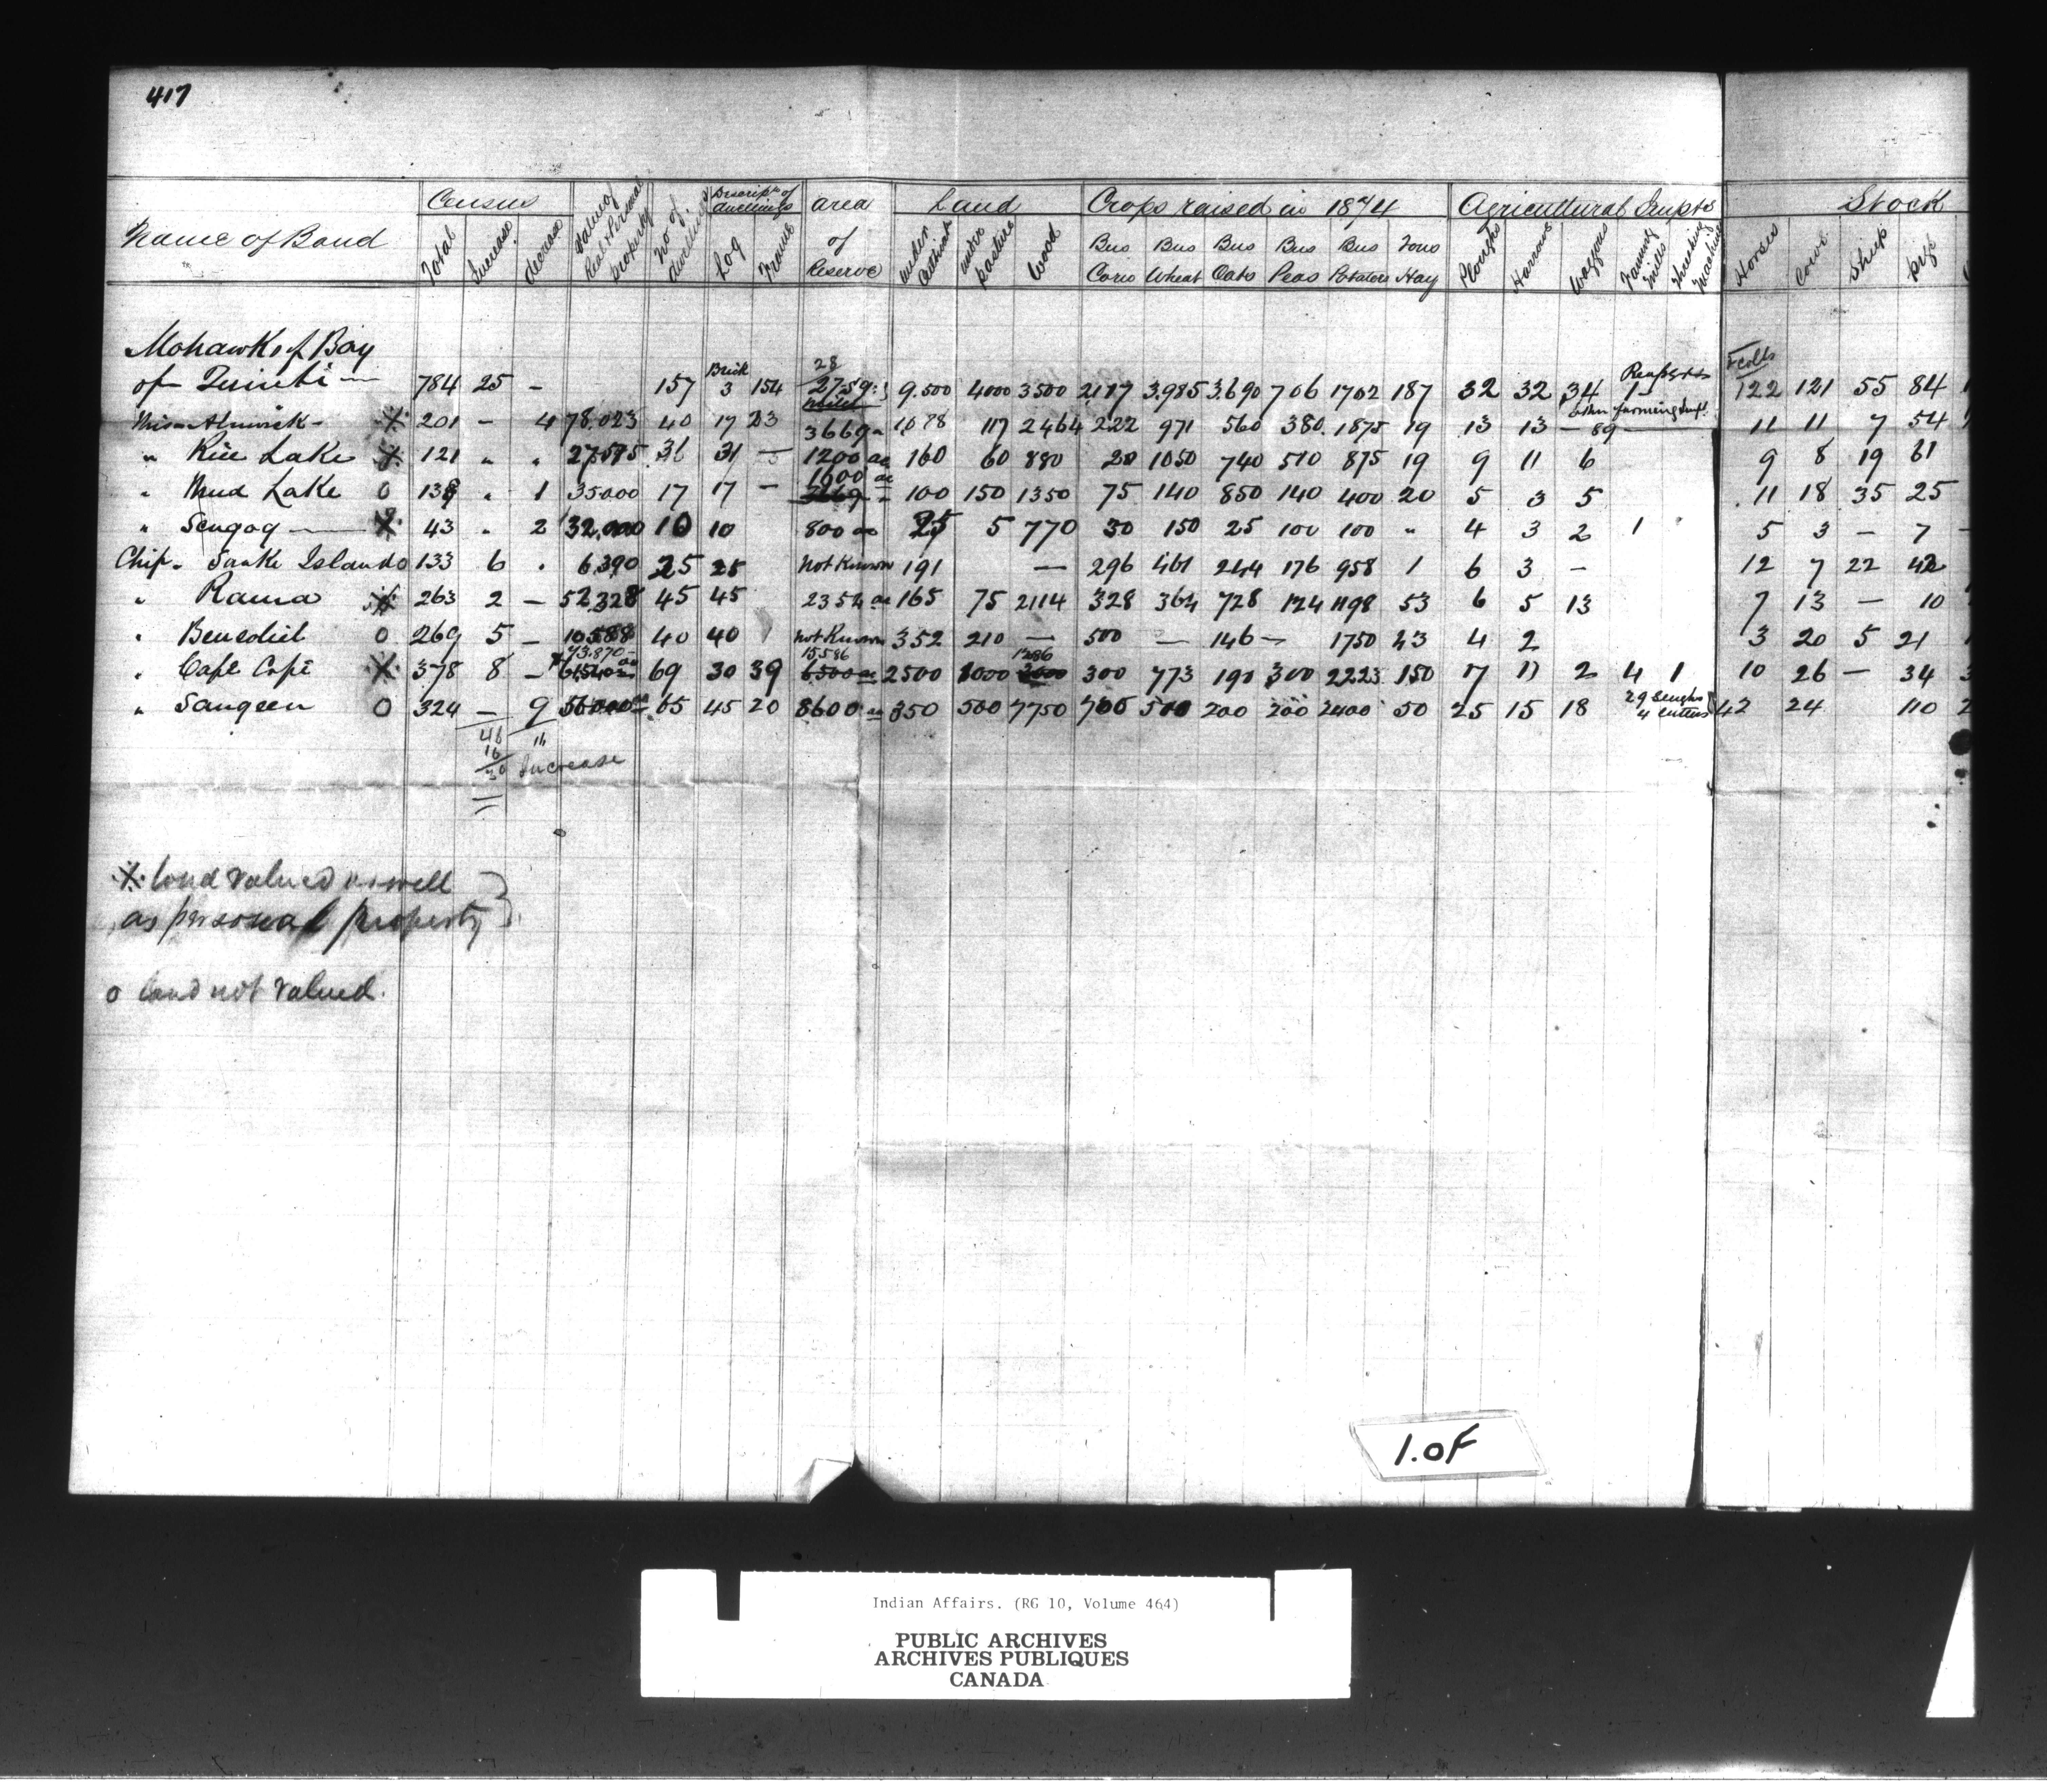 417
Name of Band Census Value of Real & Personal property No of dwellings Descriptn of dwellings area of Reserve Land Crops raised in 1874 Agricultural Impts Stock
Total Increase decrease Log Frame under Cultivat under pasture Wood Bus Corn Bus Wheat Bus Oats Bus Peas Bus Potatoes Tons Hay Ploughs Harrows Waggons Fanning Mills Threshing Machines Horses Cows Sheep pigs
Mohawks of Bay
of Quinti — 784 25 - 157 Brick 3 154 9.500 4000 3500 2117 3.985 3.690 706 1702 187 32 32 34 1 & colts 122 121 55 84
Miss Alnwick - 201 - 4 78.023 40 17 23 3669 1088 117 2464 222 971 560 380 1875 19 13 13 - other farming Impt. 89 - 11 11 7 54
" Rice Lake 121 " " 31 - 1200 ac 160 60 880 20 1050 740 510 875 19 9 11 6 9 8 19 61
" Mud Lake 0 " 1 35000 17 17 - 1600 ac 100 150 1350 75 140 850 140 400 20 5 3 5 11 18 35 25
" Scugog — 43 " 2 32,000 10 10 800 ac 25 5 770 30 150 25 100 100 " 4 3 2 1 5 3 - 7 -
Chip. Snake Island 0 133 6 " 6,390 25 25 not Known 191 — 296 461 244 176 958 1 6 3 - 12 7 22 42
" Rama 263 2 - 52,328 45 45 2352 ac 165 75 2114 328 364 728 124 1198 53 6 5 13 7 13 - 10
" Beusoliel 0 269 5 - 10588 40 40 not Known 352 210 — 500 — 146 - 1750 43 4 2 3 20 5 21
" Cape Cope 378 8 - 73.870 69 30 39 15586 2500 1000 1286 300 773 190 300 2223 150 17 11 2 4 1 10 26 - 34
" Saugeen 0 324 - 9 56000 65 45 20 8600 ac 350 500 7750 700 500 200 200 2400 50 25 15 18 29 Sleighs 4 cutters 42 24 110
46 16
16
30 Increase
※ land valued as well
as personal property }
o land not valued.
1.OF
Indian Affairs. (RG 10, Volume 464)
PUBLIC ARCHIVES
ARCHIVES PUBLIQUES
CANADA